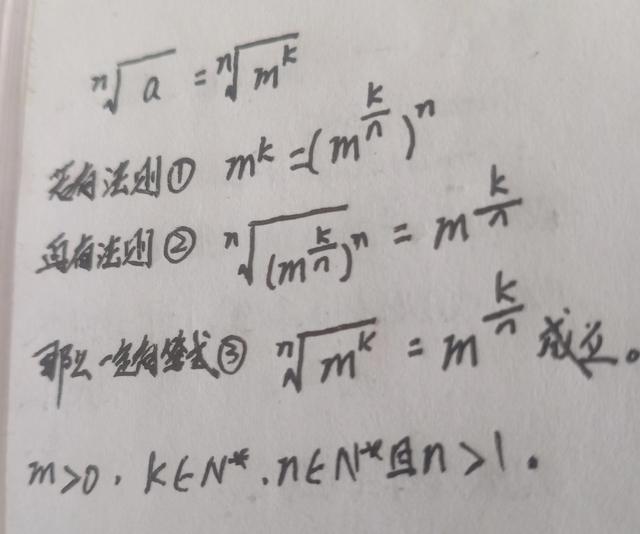 ⁿ√a = ⁿ√(m^k)
若有法则① m^k = (m^(k/n))^n
再有法则② ⁿ√((m^(k/n))^n) = m^(k/n)
那么一定有等式③ ⁿ√(m^k) = m^(k/n) 成立。
m>0, k∈N*, n∈N*且n>1.